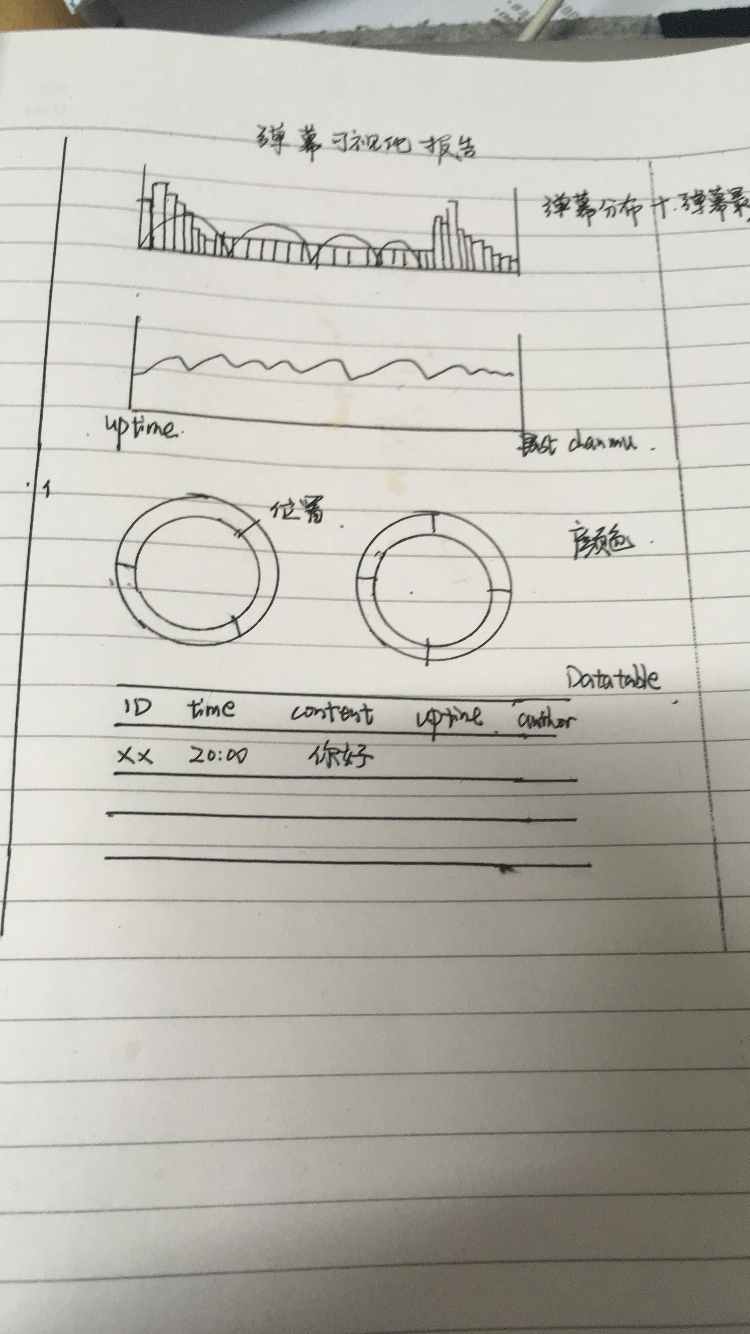 弹幕可视化报告
弹幕分布+弹幕最
uptime.
last danmu.
1
位置.
颜色.
Datatable.
ID time content uptime. author
xx 20:00 你好